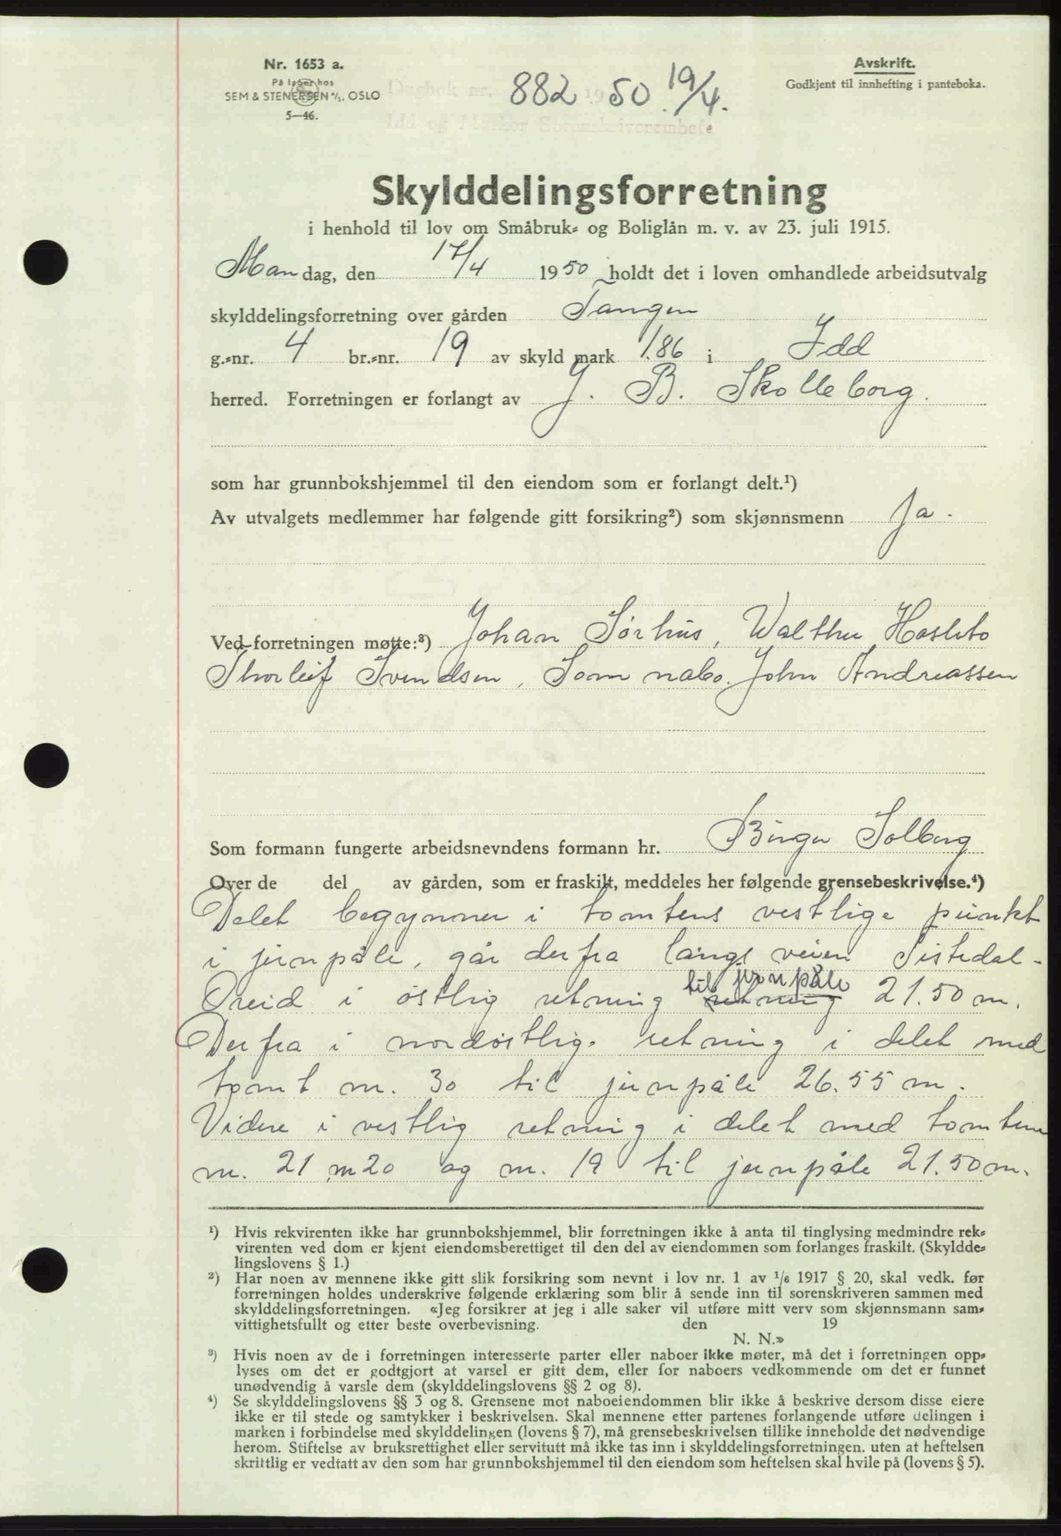 Nr. 1653 a.
På lager hos
SEM & STENERSEN A/S, OSLO
5—46.
Dagbok nr. 882 19 50 19/4.
Idd og Marker Sorenskriverembete
Avskrift.
Godkjent til innhefting i panteboka.
Skylddelingsforretning
i henhold til lov om Småbruk- og Boliglån m. v. av 23. juli 1915.
Mandag, den 17/4 1950 holdt det i loven omhandlede arbeidsutvalg
skylddelingsforretning over gården Tangen
g.-nr. 4 br.-nr. 19 av skyld mark 1.86 i Idd
herred. Forretningen er forlangt av J. B. Skolleborg.
som har grunnbokshjemmel til den eiendom som er forlangt delt.¹)
Av utvalgets medlemmer har følgende gitt forsikring²) som skjønnsmenn Ja.
Ved forretningen møtte:³) Johan Sørhus, Walther Hasleto
Thorleif Svendsen, Som nabo. John Andreassen
Som formann fungerte arbeidsnevndens formann hr. Birger Solberg
Over de del av gården, som er fraskilt, meddeles her følgende grensebeskrivelse.⁴)
Delet begynner i tomtens vestlige punkt
i jernpåle, går derfra langs veien Tistedal-
Øreid i østlig retning retning til jernpåle 21.50 m.
Derfra i nordøstlig retning i delet med
tomt nr. 30 til jernpåle 26.55 m.
Videre i vestlig retning i delet med tomtene
nr. 21, nr 20 og nr. 19 til jernpåle 21.50 m.
¹) Hvis rekvirenten ikke har grunnbokshjemmel, blir forretningen ikke å anta til tinglysing medmindre rek-
virenten ved dom er kjent eiendomsberettiget til den del av eiendommen som forlanges fraskilt. (Skyldde-
lingslovens § 1.)
²) Har noen av mennene ikke gitt slik forsikring som nevnt i lov nr. 1 av 1/6 1917 § 20, skal vedk. før
forretningen holdes underskrive følgende erklæring som blir å sende inn til sorenskriveren sammen med
skylddelingsforretningen. «Jeg forsikrer at jeg i alle saker vil utføre mitt verv som skjønnsmann sam-
vittighetsfullt og etter beste overbevisning. den 19
N. N.»
³) Hvis noen av de i forretningen interesserte parter eller naboer ikke møter, må det i forretningen opp-
lyses om det er godtgjort at varsel er gitt dem, eller for naboers vedkommende om det er funnet
unødvendig å varsle dem (skylddelingslovens §§ 2 og 8).
⁴) Se skylddelingslovens §§ 3 og 8. Grensene mot naboeiendommen blir ikke å beskrive dersom disse eiere
ikke er til stede og samtykker i beskrivelsen. Skal mennene etter partenes forlangende utføre delingen i
marken i forbindelse med skylddelingen (lovens § 7), må grensebeskrivelsen tillike inneholde det nødvendige
herom. Stiftelse av bruksrettighet eller servitutt må ikke tas inn i skylddelingsforretningen. uten at heftelsen
skriftlig er vedtatt av den som har grunnbokshjemmel til den eiendom som heftelsen skal hvile på (lovens § 5).